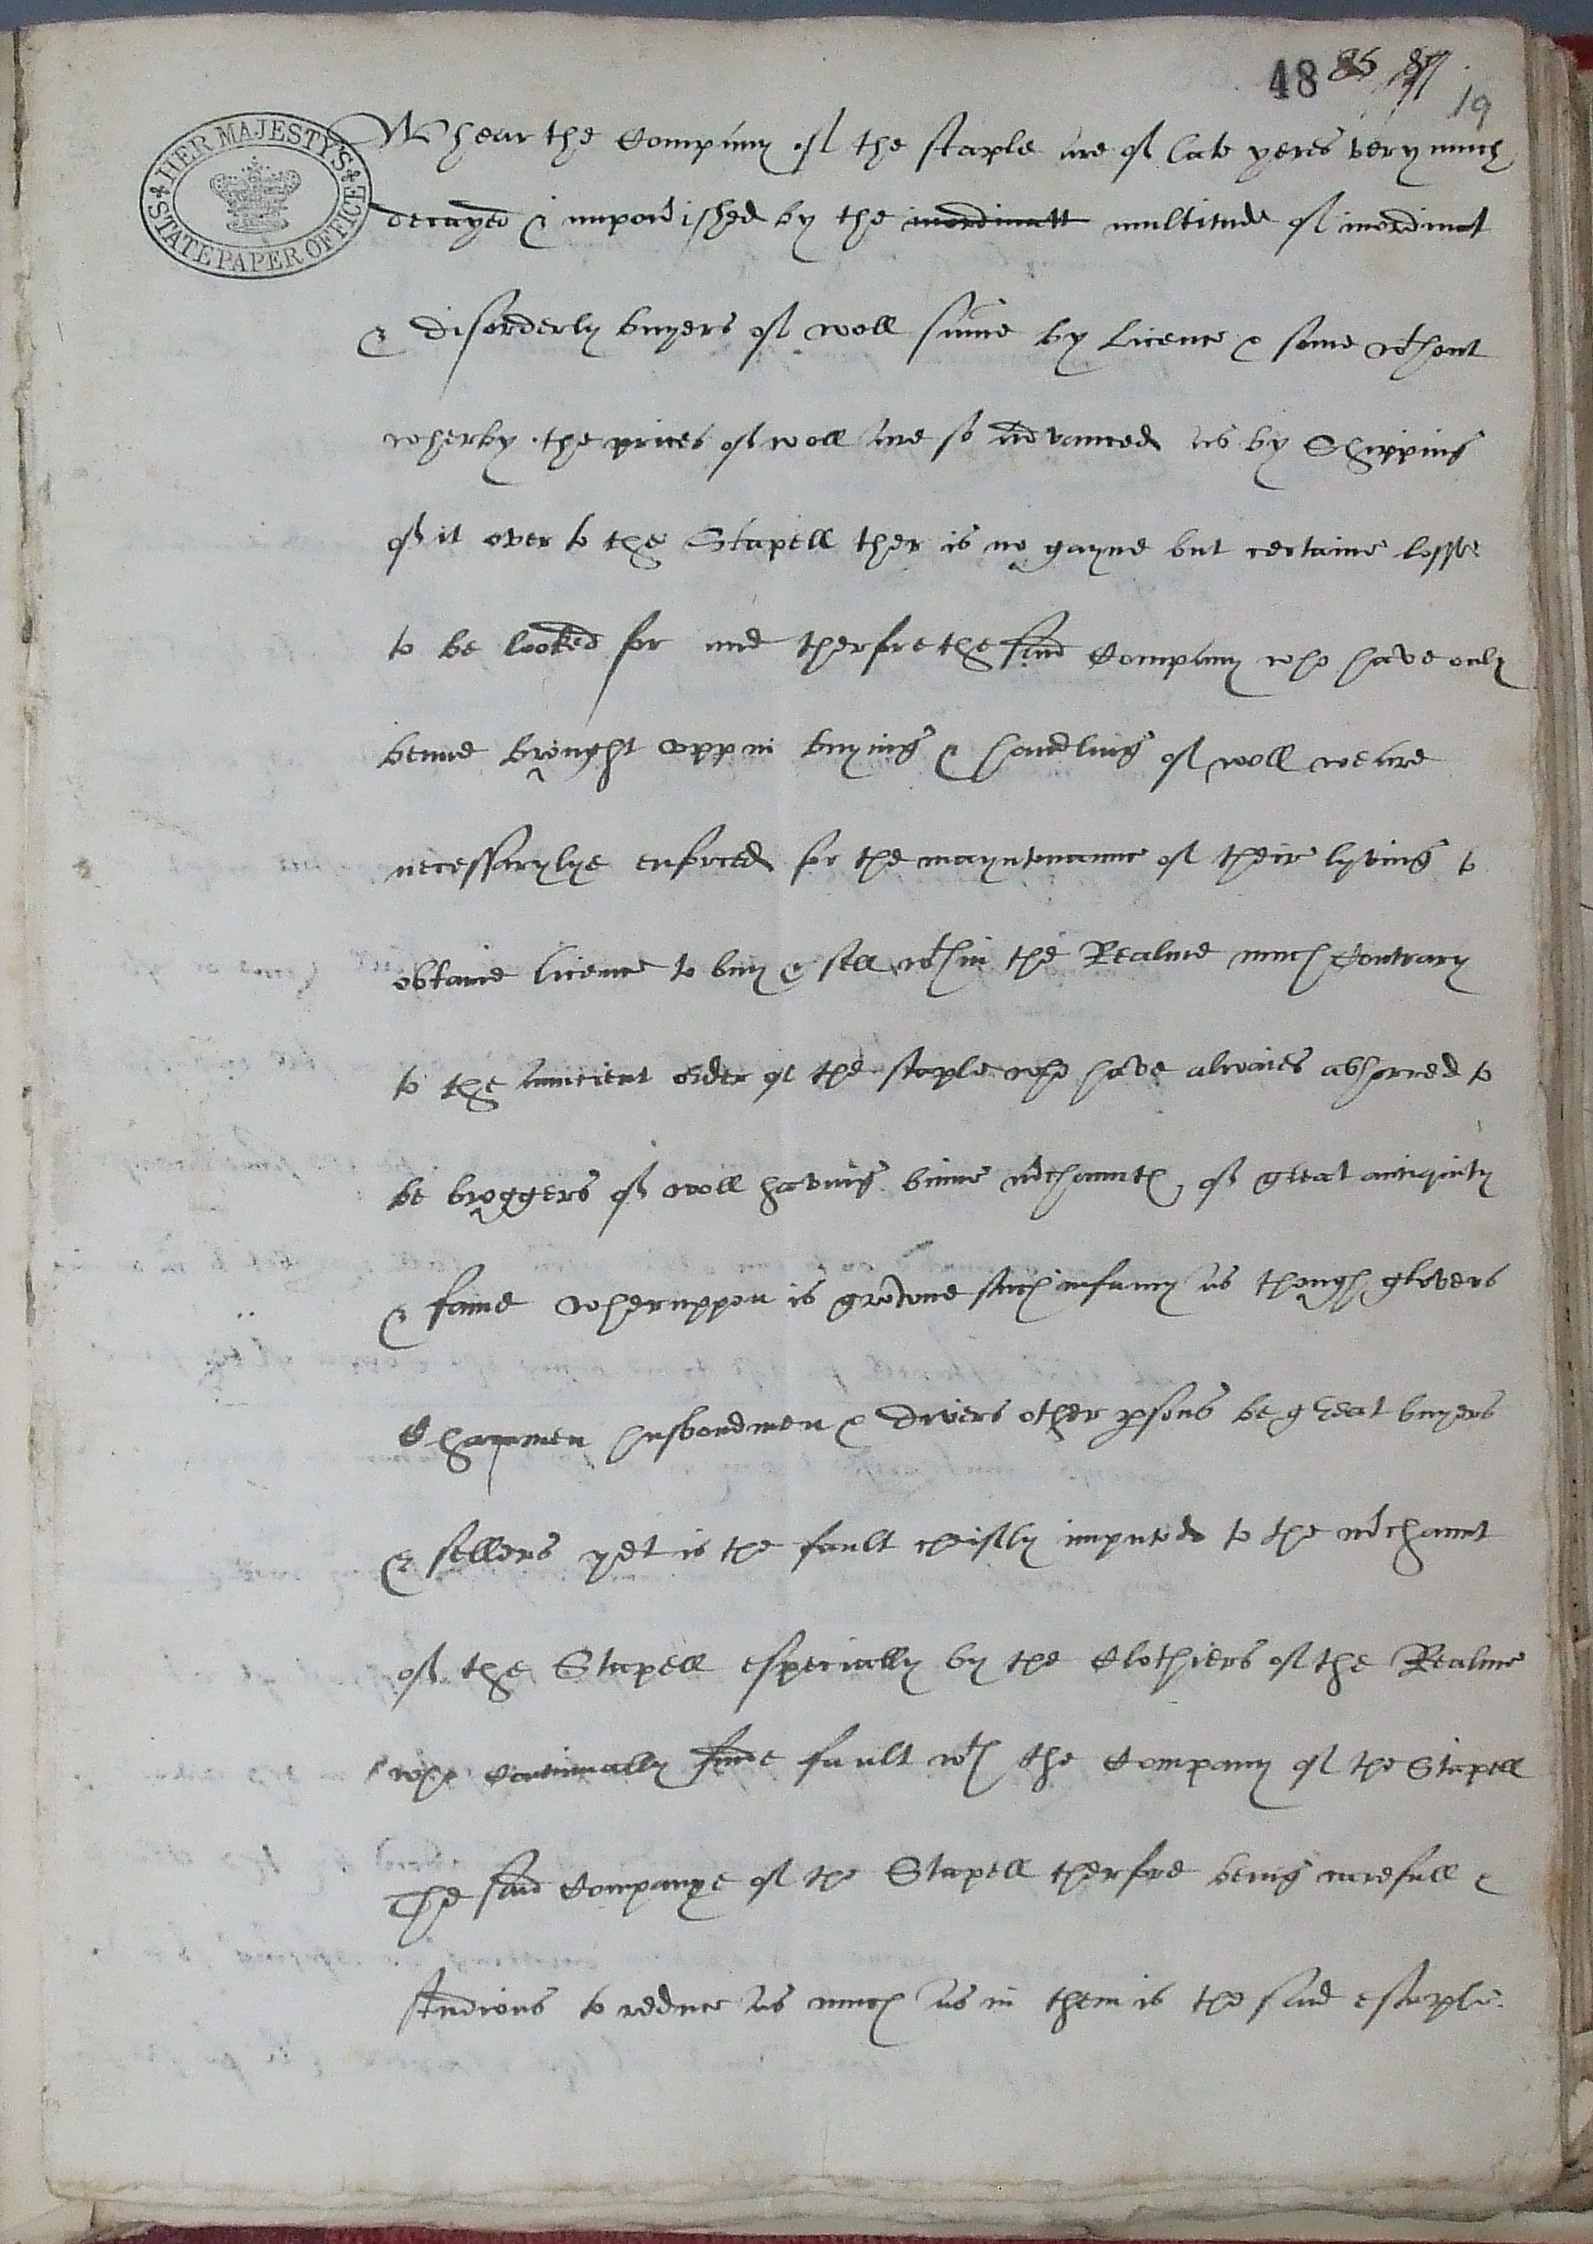 48 85
19
HER MAJESTY'S STATE PAPER OFFICE
Whear the Company of the staple are of late yeres very much
decayed & impov'ished by the inordinatt multitude of inordinat
& disorderly buyers of woll sume by Licence & some wthout
wherby the prices of woll are so advanced as by Shipping
of it over to the Stapell ther is no gayne but certaine losse
to be looked for and therfore the said Company who have only
benne brought upp in buying & handling of woll we are
necessarylye enforced for the mayntenance of their lyving to
obtaine licence to buy & sell wthin the Realme much Contrary
to the auncient order of the staple who have alwaies abhorred to
be broggers of woll having binne m'chauntes of great antiquity
& fame wheruppon is growne such infamy as though glovers
Chapmen husbondmen & divers other psons be great buyers
& sellers yet is the fault cheifly imputed to the m'chaunt
of the Stapell especially by the Clothiers of the Realme
who Continually finde fault wth the Company of the Stapell
The said Companye of the Stapell therfore being carefull &
studious to reduce as much as in them is the said estaple